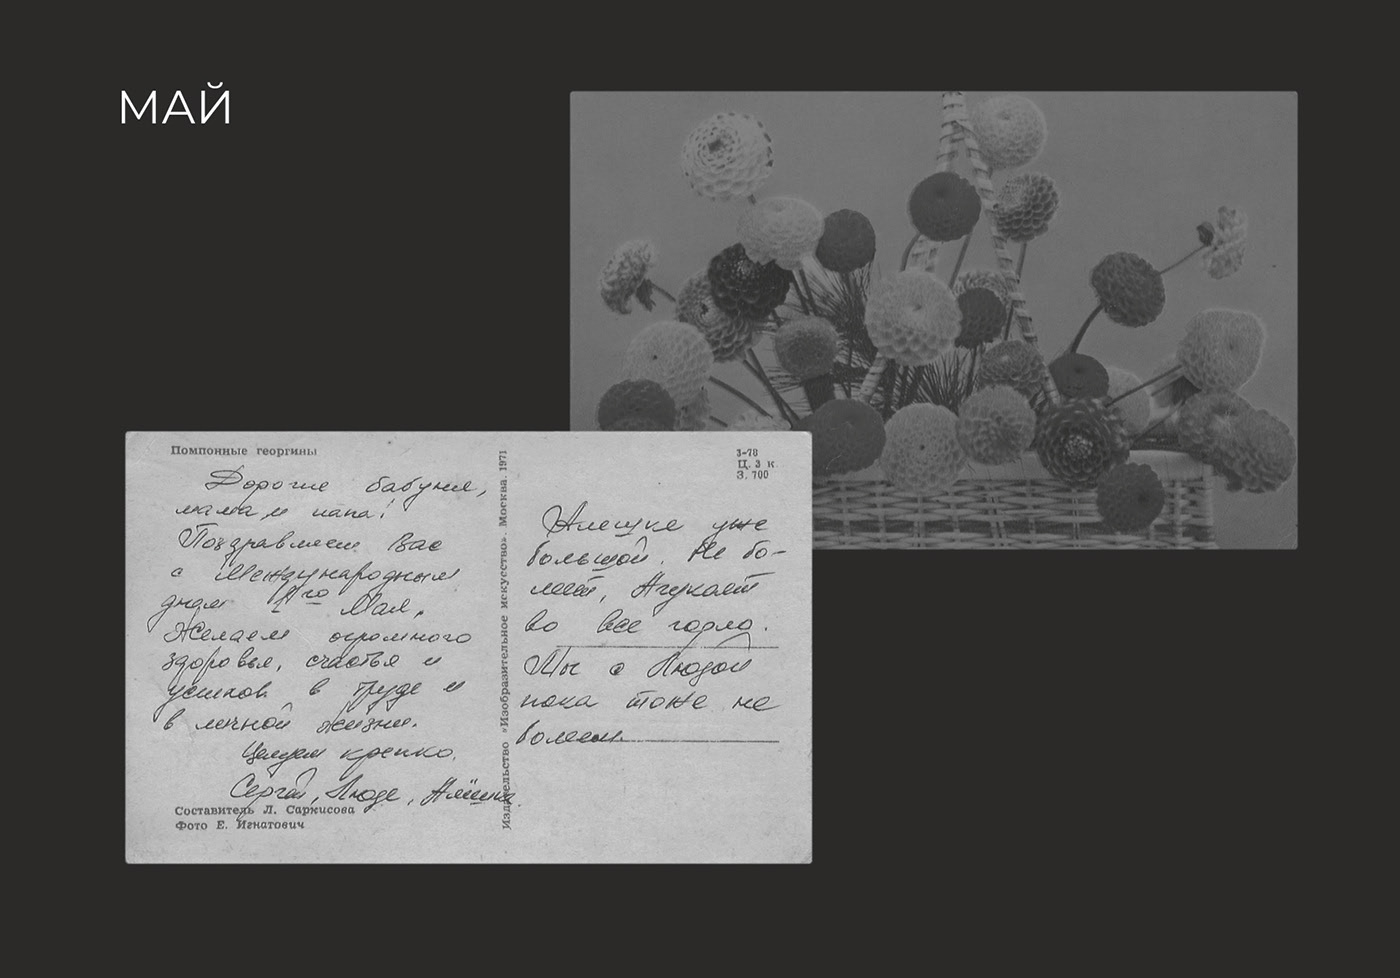 МАЙ
Помпонные георгины
Дорогие бабуня,
мама и папа!
Поздравляем Вас
с Международным
днем 1го Мая,
Желаем огромного
здоровья, счастья и
успехов в труде и
в личной жизни.
Целуем крепко.
Сергей, Люда, Алёшка.
Составитель Л. Саркисова
Фото Е. Игнатович
Издательство «Изобразительное искусство». Москва. 1971
3-78
Ц. 3 к.
З. 700
Алешка уже
большой. Не бо-
леет, Агукает
во все горло.
Мы с Людой
пока тоже не
болеем.